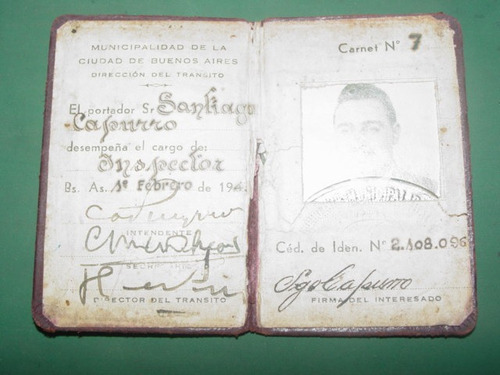 MUNICIPALIDAD DE LA
CIUDAD DE BUENOS AIRES
DIRECCIÓN DEL TRANSITO
El portador Sr Santiago
Capurro
desempeña el cargo de:
Inspector
Bs. As. 1º Febrero de 194
INTENDENTE
SECRETARIO
DIRECTOR DEL TRANSITO
Carnet Nº 7
Céd. de Iden. Nº 2.108.096
Sgo Capurro
FIRMA DEL INTERESADO